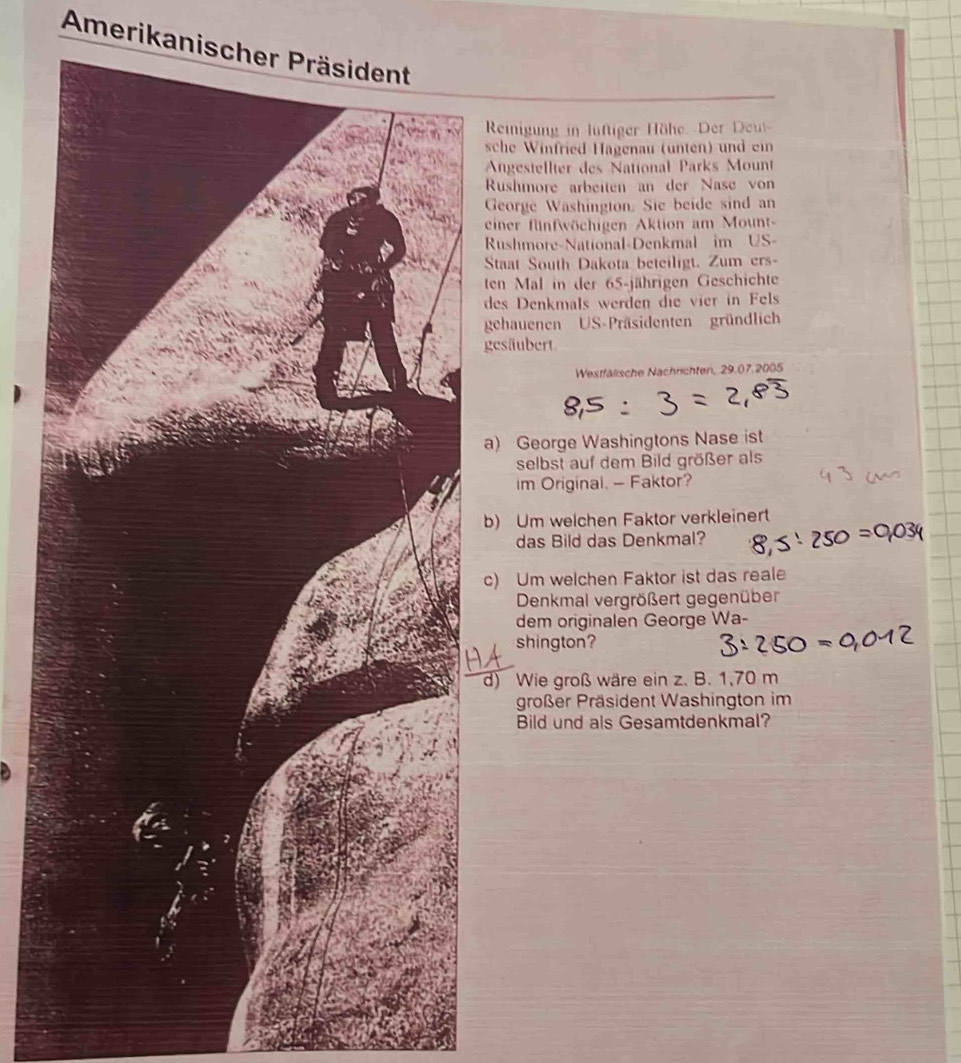 Amerikanischer Präsident
Reinigung in luftiger Höhe. Der Deut-
sche Winfried Hagenau (unten) und ein
Angestellter des National Parks Mount
Rushmore arbeiten an der Nase von
George Washington. Sie beide sind an
einer fünfwöchigen Aktion am Mount-
Rushmore-National-Denkmal im US-
Staat South Dakota beteiligt. Zum ers-
ten Mal in der 65-jährigen Geschichte
des Denkmals werden die vier in Fels
gehauenen US-Präsidenten gründlich
gesäubert.
Westfälische Nachrichten, 29.07.2005
8,5 : 3 = 2,83
a) George Washingtons Nase ist
selbst auf dem Bild größer als
im Original. – Faktor?
43 cm
b) Um welchen Faktor verkleinert
das Bild das Denkmal?
8,5 : 250 = 0,034
c) Um welchen Faktor ist das reale
Denkmal vergrößert gegenüber
dem originalen George Wa-
shington?
3 : 250 = 0,012
HA
d) Wie groß wäre ein z. B. 1,70 m
großer Präsident Washington im
Bild und als Gesamtdenkmal?